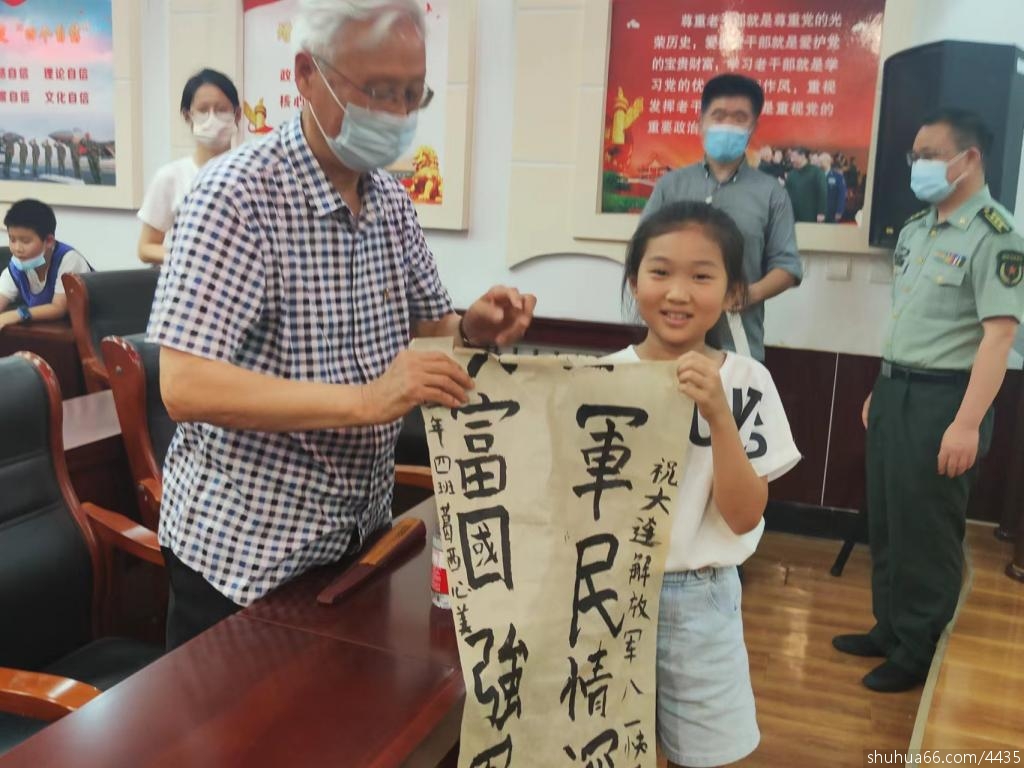 "四个自信"
自信 理论自信
自信 文化自信
政
核心
尊重老 部就是尊重党的光
荣历史，爱 干部就是爱护党
的宝贵财富，学习老干部就是学
习党的优 作风，重视
发挥老干 是重视党的
重要政治
祝大莲解放军八一
軍民情深
富國強
年四班葛西心美
shuhua66.com/4435